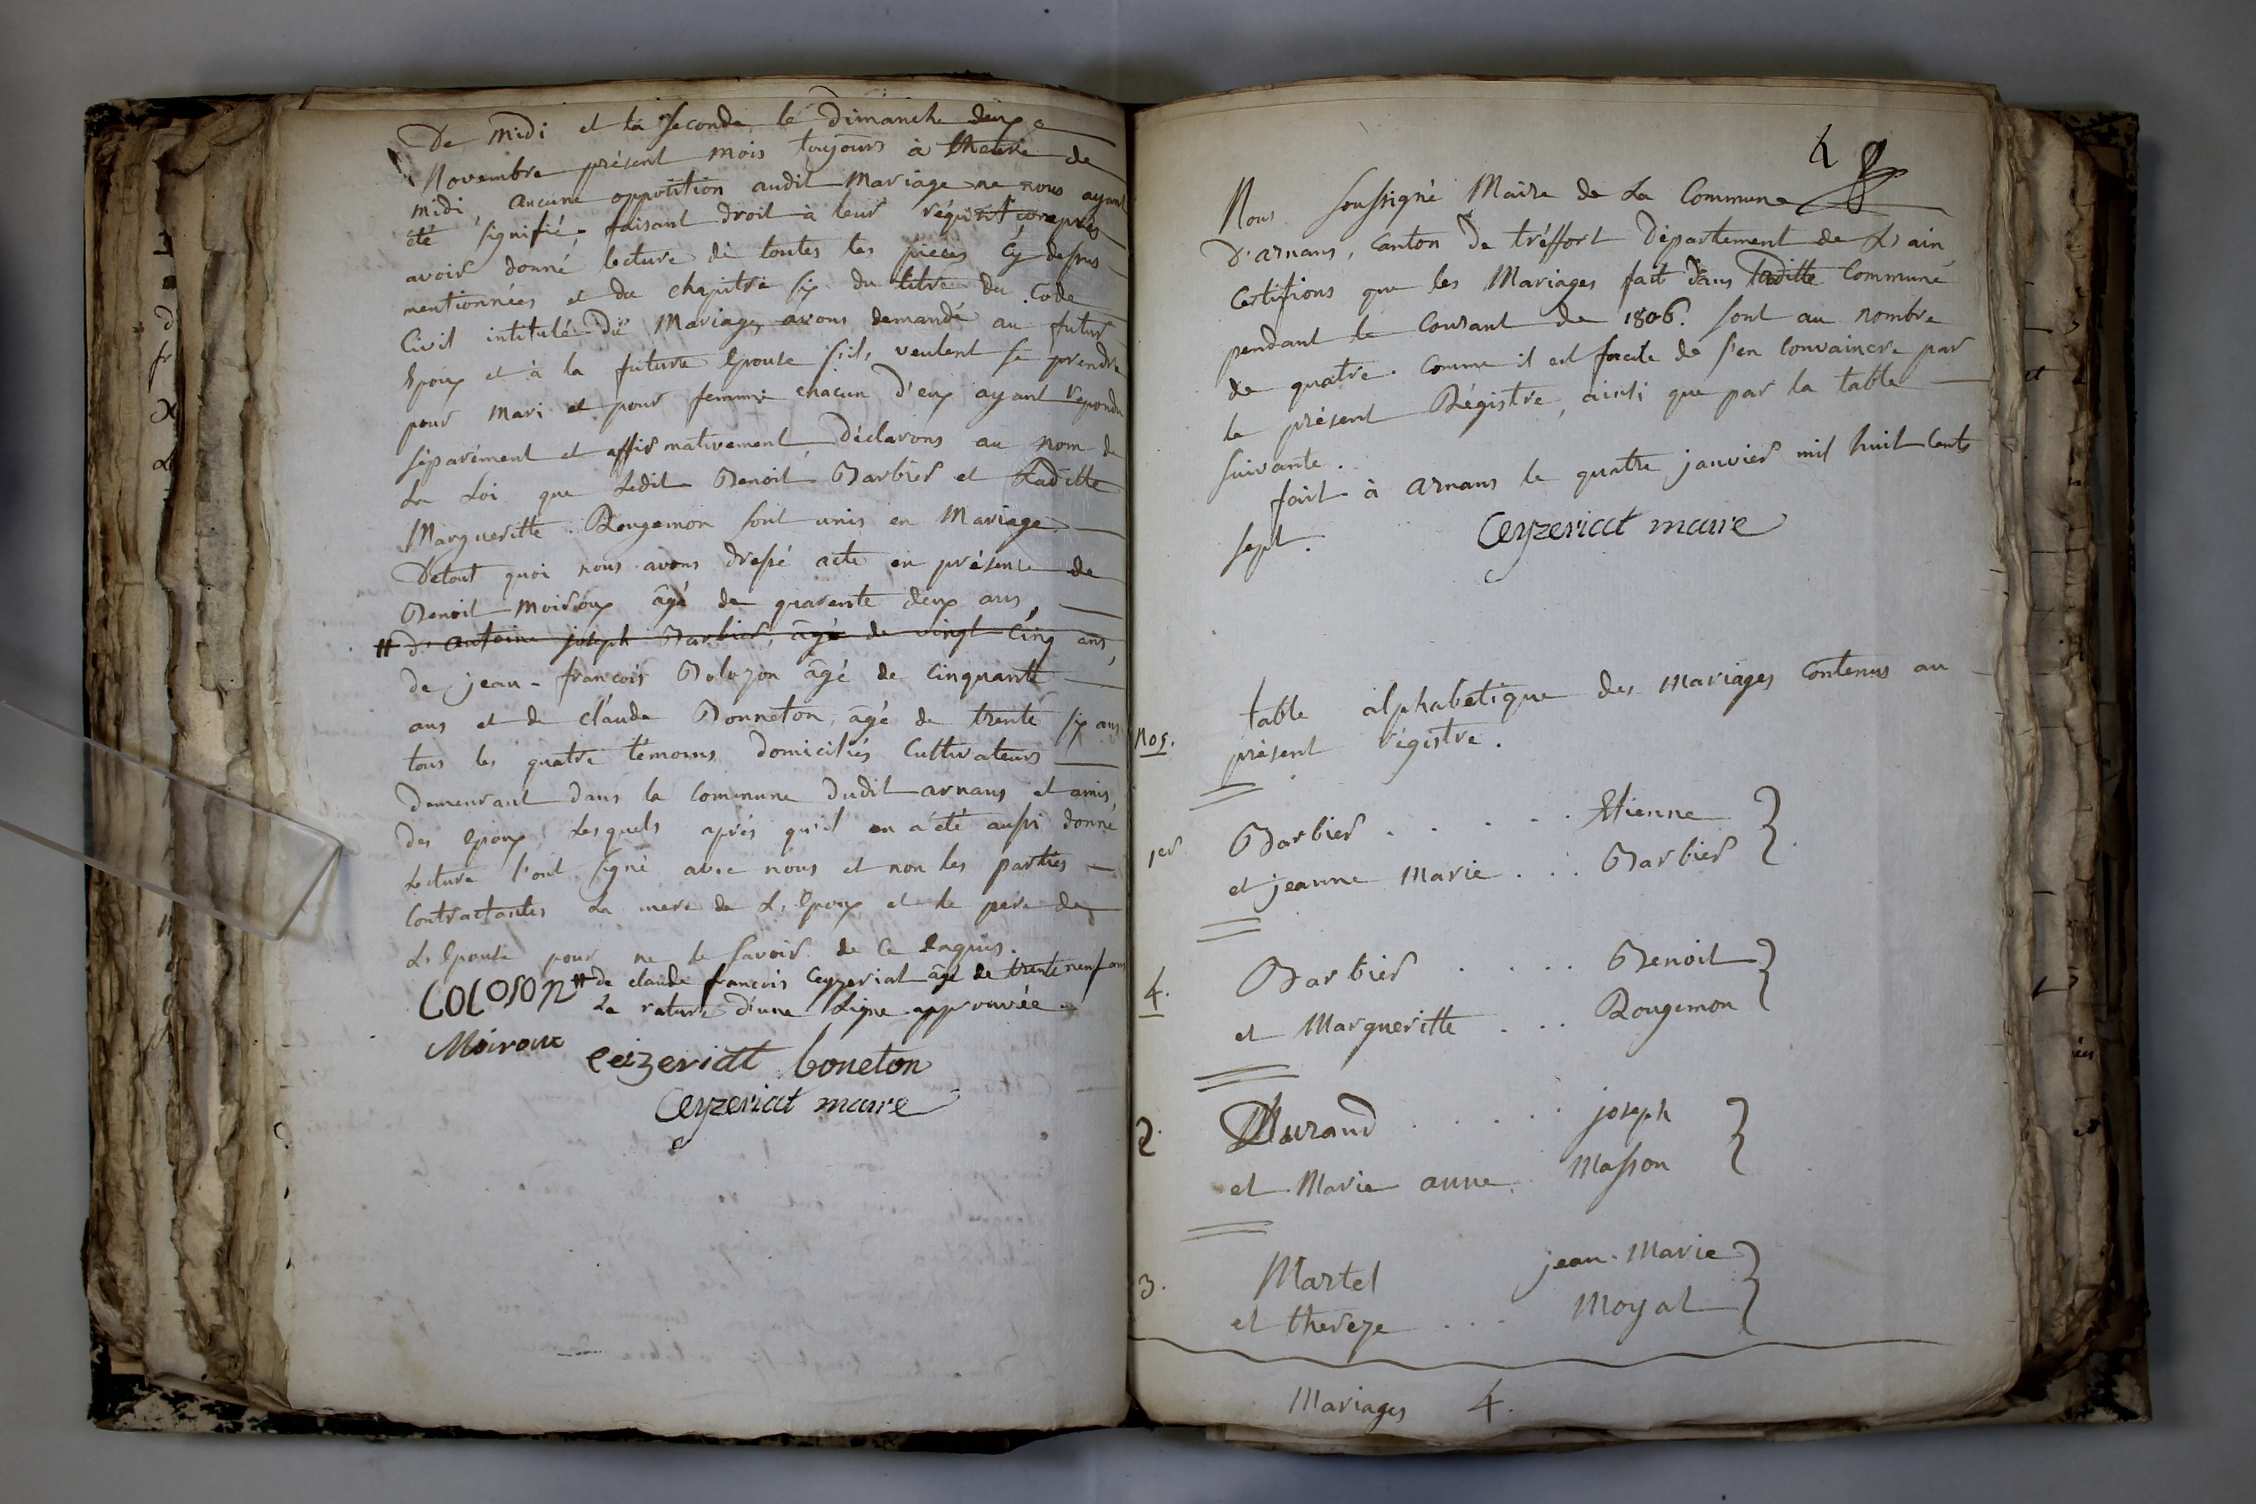 De midi et la seconde le Dimanche deux
Novembre présent mois toujours à l'heure de
midi, aucune opposition audit Mariage ne nous ayant
été signifié, faisant droit à leur réquisit, après
avoir donné lecture de toutes les pièces cy dessus
mentionnées et du chapitre six du titre du Code
Civil intitulé Du Mariage, avons demandé au futur
Epoux et à la future Epouse s'ils veulent se prendre
pour Mari et pour femme chacun d'eux ayant repondu
séparément et affirmativement, Déclarons au nom de
La Loi que Ledit Benoit Barbier et Laditte
Margueritte Rougemon sont unis en Mariage
De tout quoi nous avons dressé acte en présence de
Benoit Moiroux âgé de quarente deux ans,
# d'antoine joseph Barbier, âgé de vingt cinq ans,
de jean-francois Bolozon âgé de cinquante
ans et de claude Bonneton, âgé de trente six ans
tous les quatre témoins domiciliés Cultivateurs
demeurant dans la commune dudit arnans et amis,
des Epoux, Lesquels après qu'il en a été aussi donné
Lecture l'ont signé avec nous et non les parties
Contractantes La mere de L'Epoux et le père de
L'Epouse pour ne le savoir de ce Enquis.
# de claude francois Ceyzeriat âgé de trente neuf ans
La rature d'une Ligne approuvée
COLOSON
Moiroux
Ceizeriat boneton
Ceyzeriat maire
4
Nous soussigné Maire de La Commune
D'arnans, Canton de tréffort Département de L'ain,
Certifions que les Mariages fait dans Laditte Commune
pendant le Courant de 1806. sont au nombre
de quatre. comme il est facile de s'en Convaincre par
le présent Régistre, ainsi que par la table
suivante.
fait à arnans le quatre janvier mil huit Cents
sept.
Ceyzeriat maire
table alphabetique des mariages Contenus au
Nos.
présent régistre.
Barbier . . . . . Etienne
1er
et jeanne Marie . . . Barbier
Barbier . . . . Benoit
4.
et Margueritte . . . Rougemon
Durand . . . . . joseph
2.
et Marie anne . Masson
Martel jean-Marie
3.
et thereze . . . Moyat
Mariages 4.